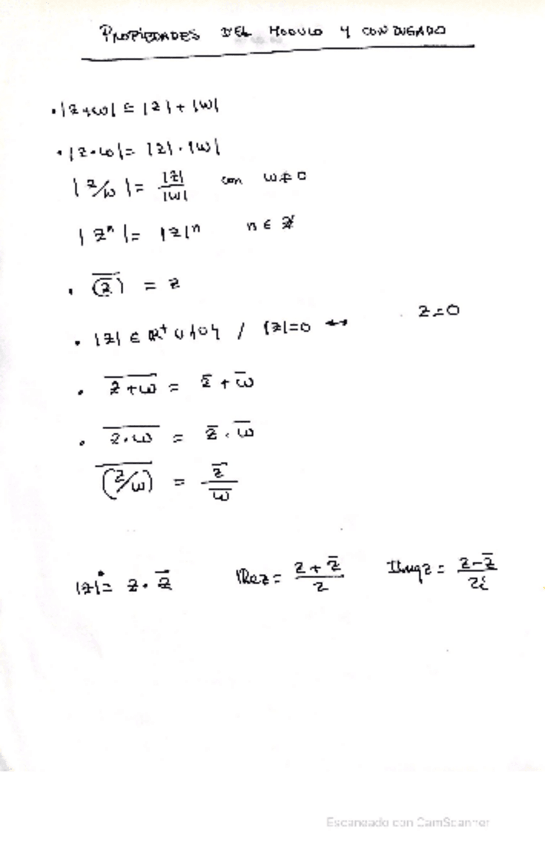 PROPIEDADES DEL MODULO Y CONJUGADO
• |z+w| ≤ |z| + |w|
• |z·w| = |z|·|w|
|z/w| = |z|/|w| con w≠0
|zⁿ| = |z|ⁿ n ∈ ℤ
• \overline{(\overline{z})} = z
• |z| ∈ ℝ⁺ ∪ {0} / |z|=0 ↔ z=0
• \overline{z+w} = \overline{z} + \overline{w}
• \overline{z·w} = \overline{z} · \overline{w}
\overline{(z/w)} = \overline{z}/\overline{w}
|z|² = z · \overline{z} Re z = (z + \overline{z})/2 Img z = (z - \overline{z})/2i
Escaneado con CamScanner